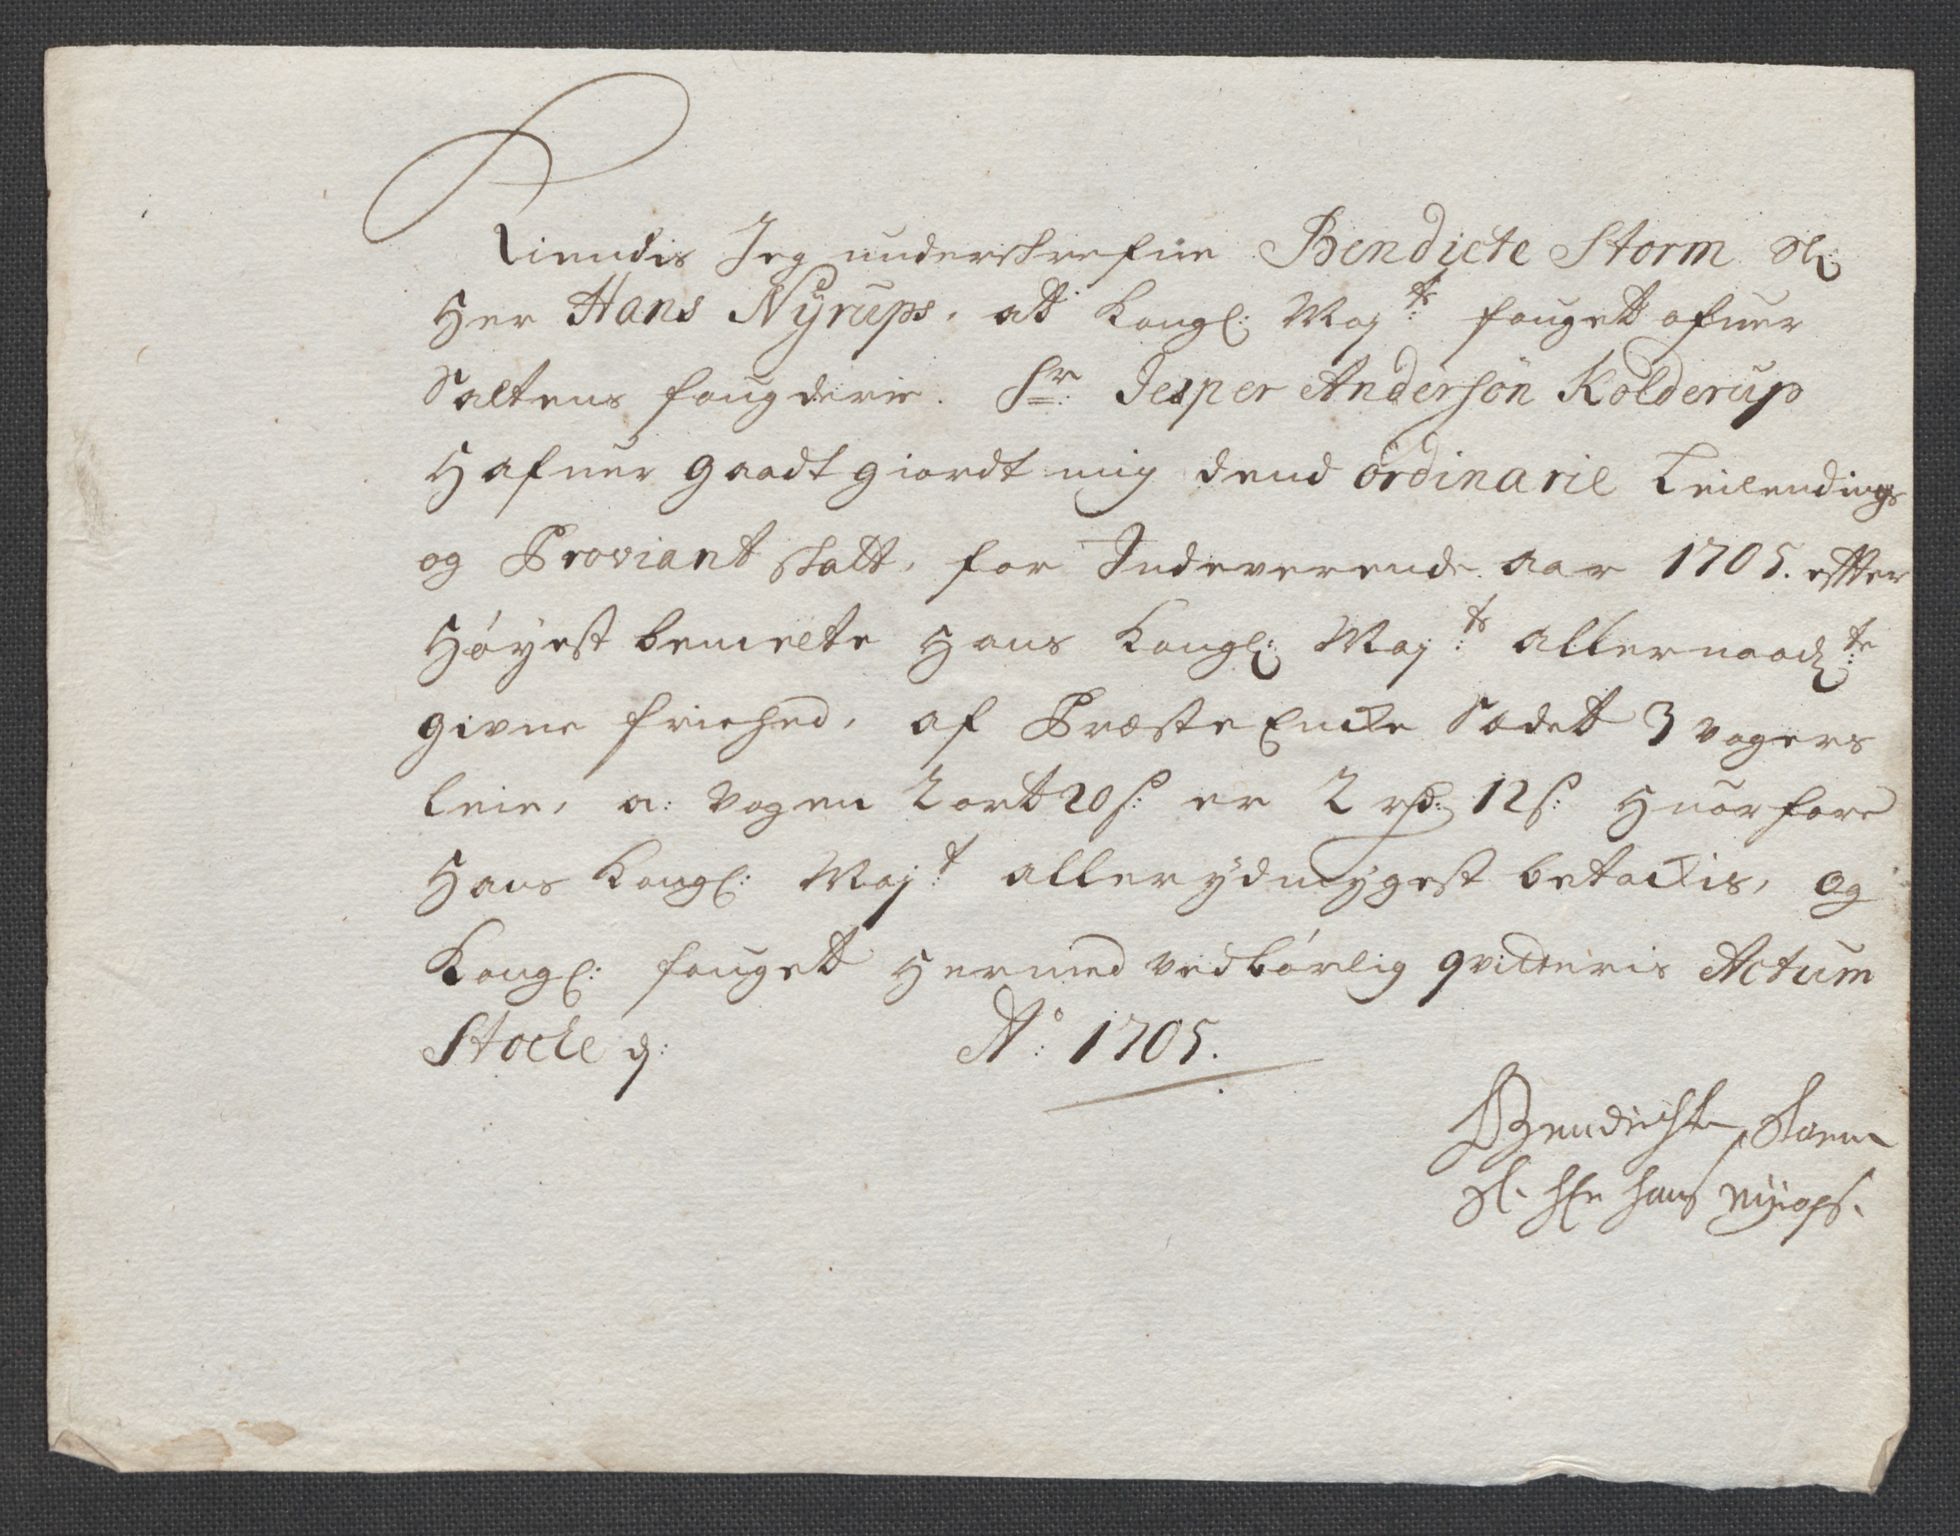 Kiendis Jeg underskrefne Bendicte Storm Sl:
Her Hans Nyrups, att Kongl: Maj:ts fougett ofuer
Saltens fougderie. Sr: Jesper Andersøn Kolderup
Hafuer gaadtgiordt mig dend ordinarie Leilendings
og Proviant Skatt, for Indeverende aar 1705. effter
Høyest bemelte Hans Kongl: Maj:ts allernaadg:te
givne friehed, af Præste Encke Sædett 3 vogers
leie, a: vogen 2 ort 20 s: er 2 rd: 12 s: Huorfore
Hans Kongl: Maj:t allerydmygest betackis, og
Kongl: fougett Hermed vedbørlig qvitteris Actum
Stocke d: Ao: 1705.
Bendichte Storm
Sl. Hr Hans Nyrops.